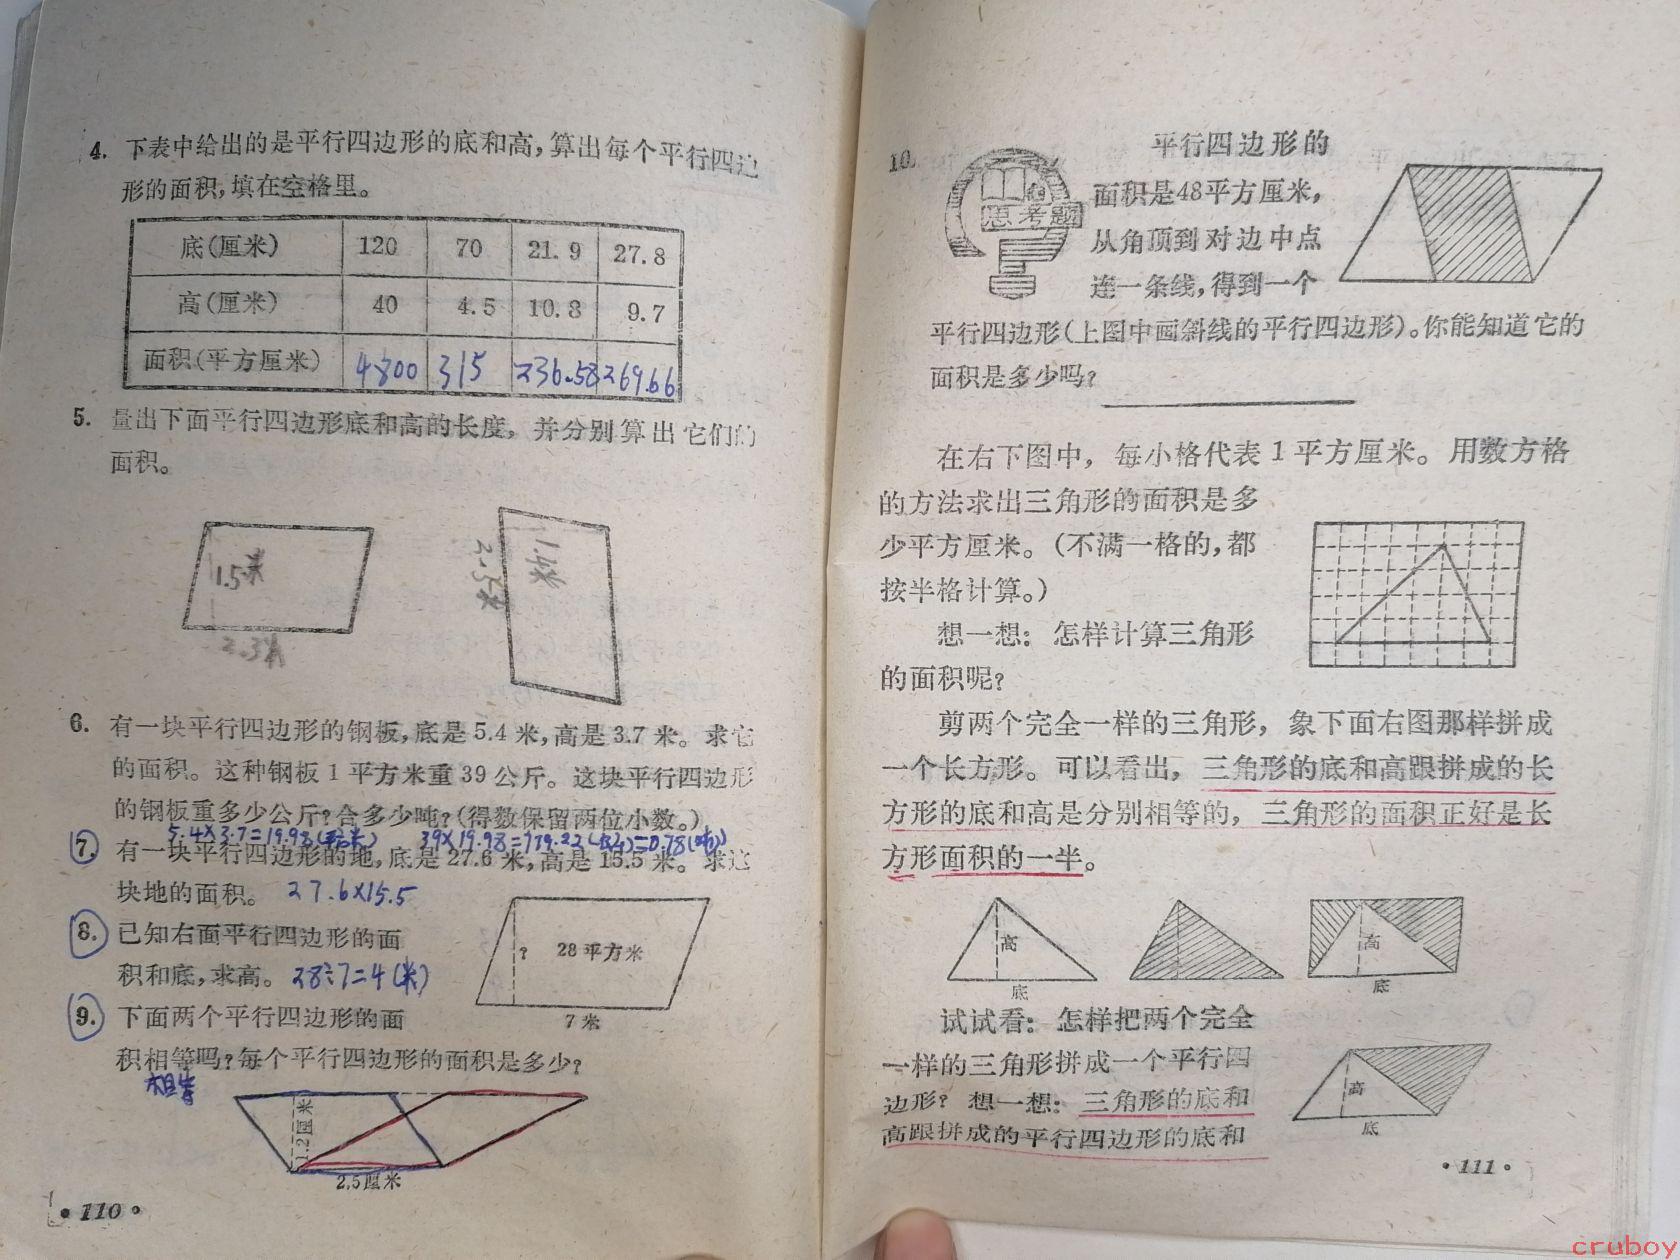 4. 下表中给出的是平行四边形的底和高,算出每个平行四边
形的面积,填在空格里。
底(厘米) 120 70 21.9 27.8
高(厘米) 40 4.5 10.8 9.7
面积(平方厘米) 4800 315 236.58 269.66
5. 量出下面平行四边形底和高的长度,并分别算出它们的
面积。
1.5米
2.3米
1.4米
2.3米
6. 有一块平行四边形的钢板,底是5.4米,高是3.7米。求它
的面积。这种钢板1平方米重39公斤。这块平行四边形
的钢板重多少公斤?合多少吨?(得数保留两位小数。)
5.4×3.7=19.98(平方米) 39×19.98=779.22(公斤)=0.78(吨)
7. 有一块平行四边形的地,底是27.6米,高是15.5米。求这
块地的面积。 27.6×15.5
8. 已知右面平行四边形的面
积和底,求高。 28÷7=4(米)
? 28平方米
7米
9. 下面两个平行四边形的面
积相等吗?每个平行四边形的面积是多少?
相等
1.2厘米
2.5厘米
·110·
10.
思考题
平行四边形的
面积是48平方厘米,
从角顶到对边中点
连一条线,得到一个
平行四边形(上图中画斜线的平行四边形)。你能知道它的
面积是多少吗?
在右下图中,每小格代表1平方厘米。用数方格
的方法求出三角形的面积是多
少平方厘米。(不满一格的,都
按半格计算。)
想一想:怎样计算三角形
的面积呢?
剪两个完全一样的三角形,象下面右图那样拼成
一个长方形。可以看出,三角形的底和高跟拼成的长
方形的底和高是分别相等的,三角形的面积正好是长
方形面积的一半。
高
底
高
底
试试看:怎样把两个完全
一样的三角形拼成一个平行四
边形?想一想:三角形的底和
高跟拼成的平行四边形的底和
高
底
·111·
cruboy